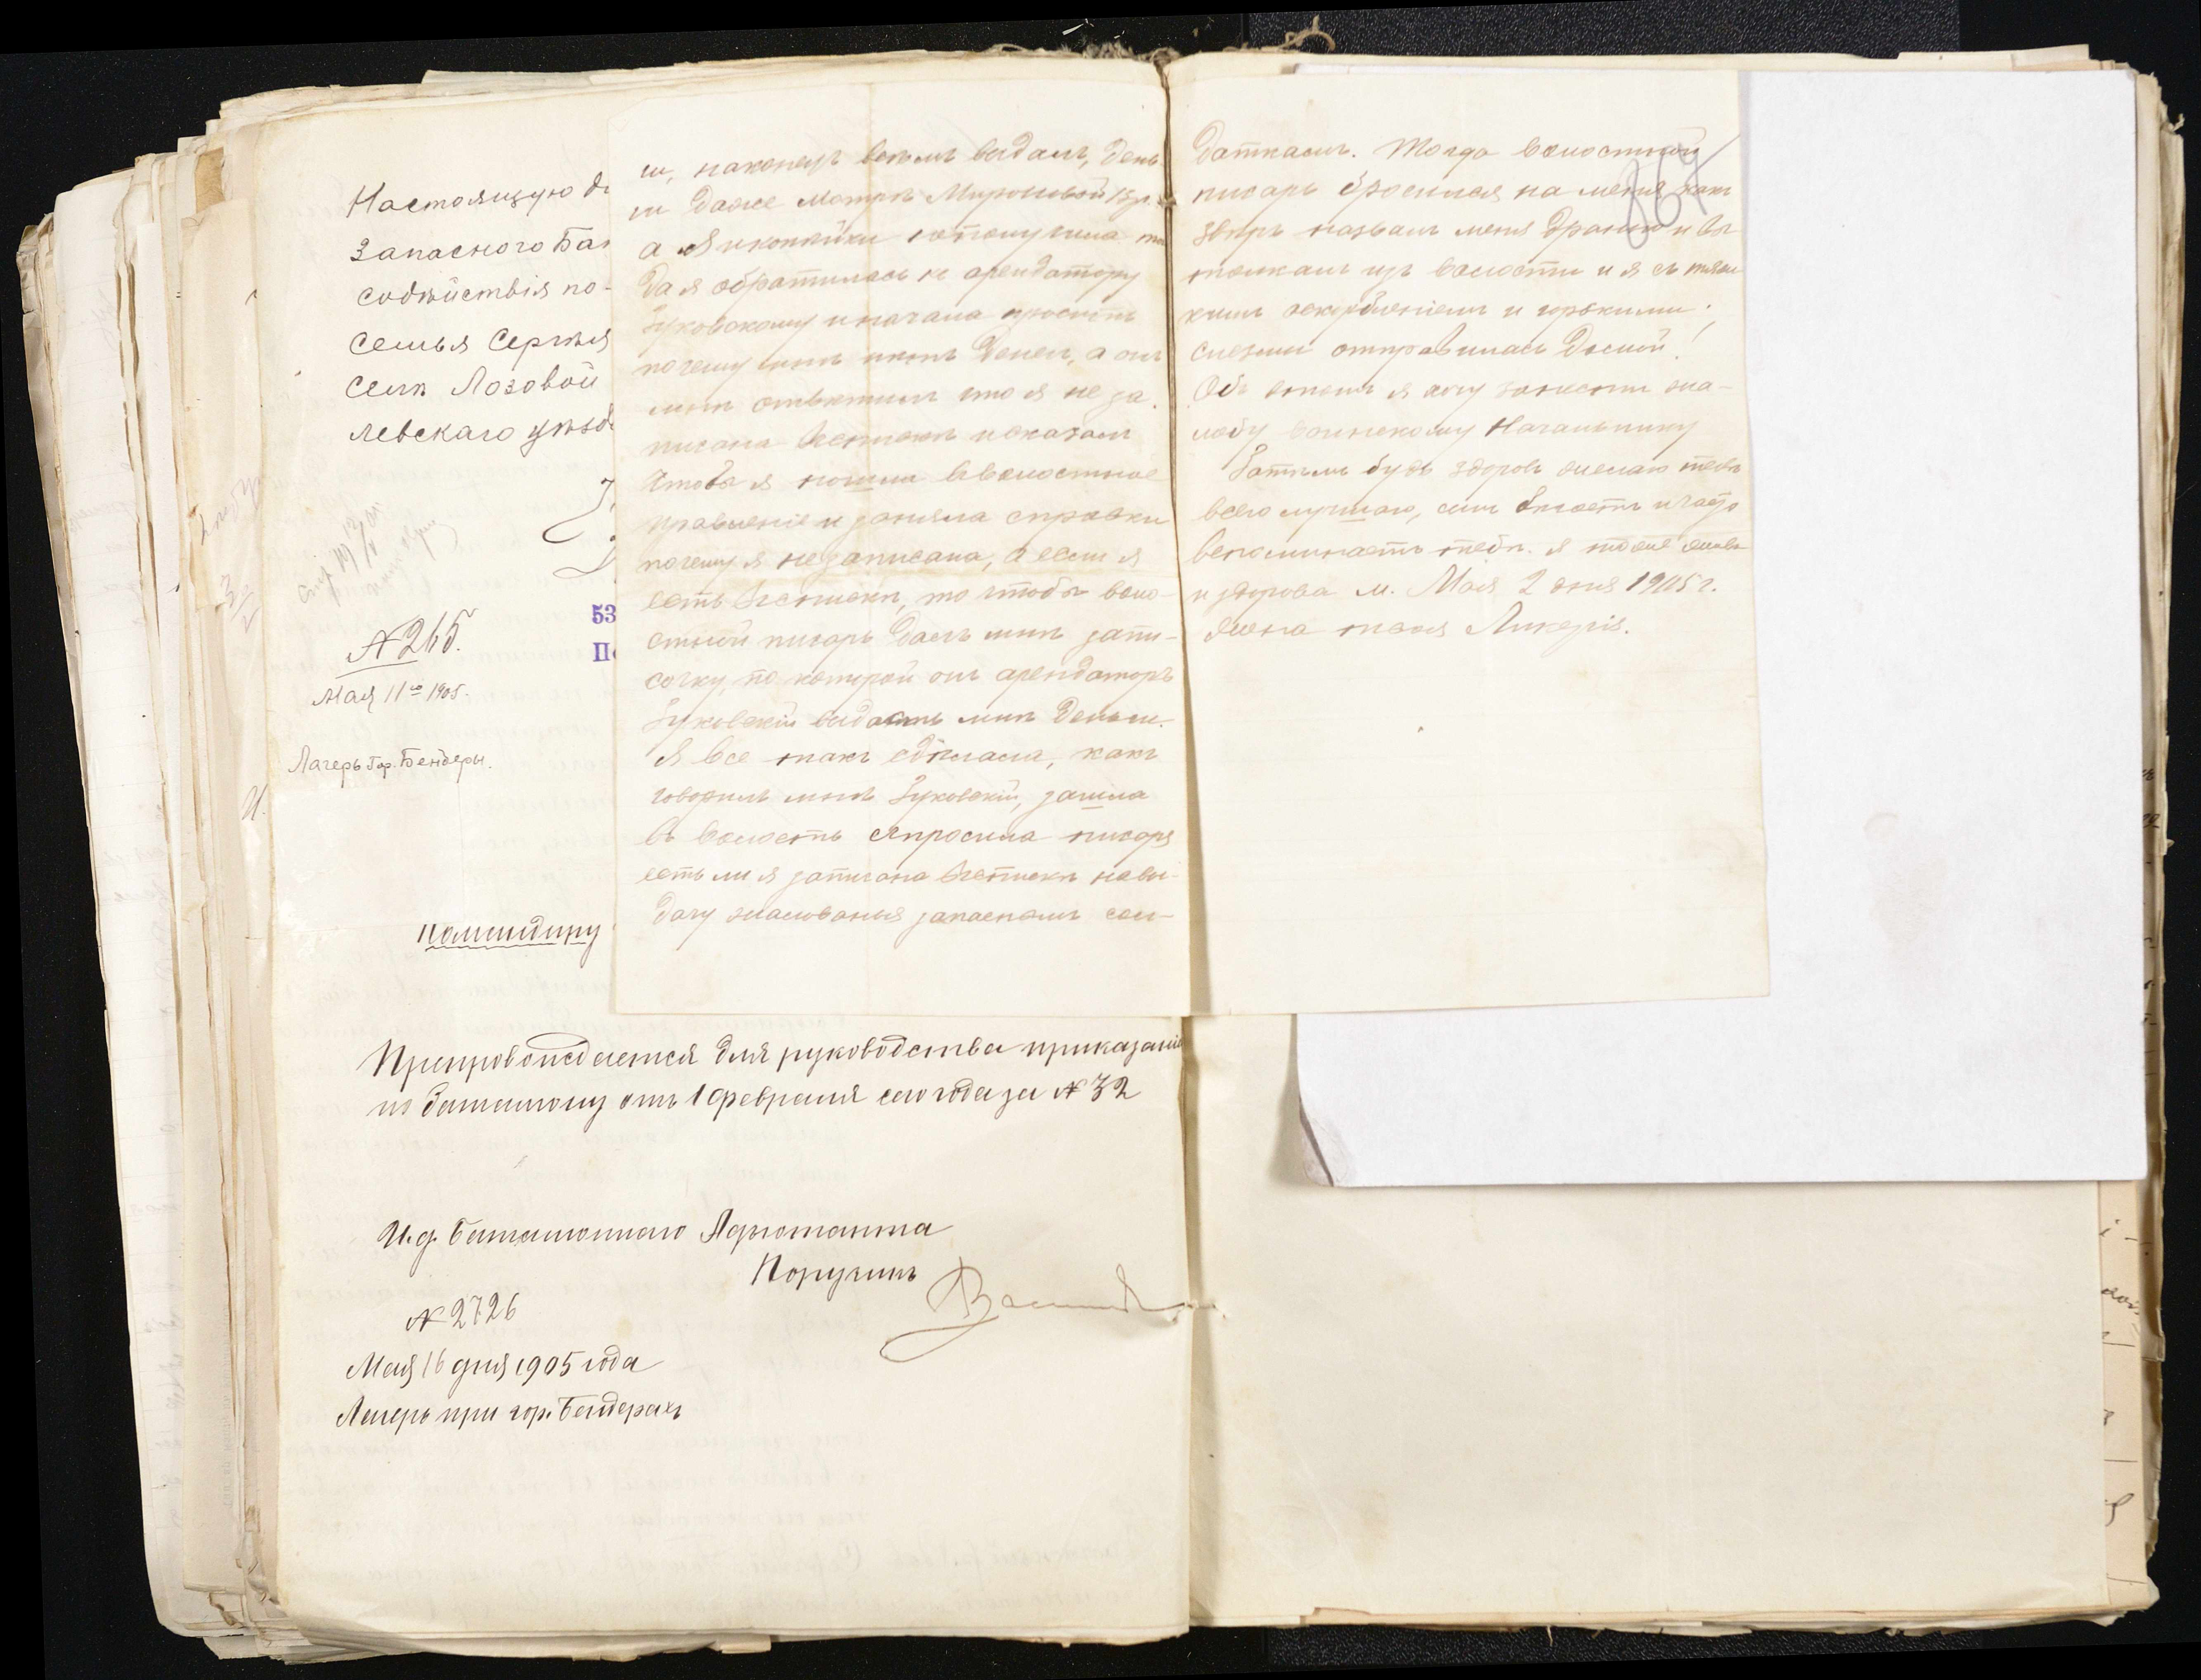 Настоящую
Запаснаго Бат
содѣйствія по-
семья Сергѣя
селѣ Лозовой
левскаго уѣзд
№ 265.
Мая 11го 1905.
Лагерь Гор. Бендеры.
53
командиру
ги, наконецъ всѣмъ выдалъ, день-
ги даже Мотрѣ Мироновой 13 р.
а я и копѣйки не получила то
да я обратилась к арендатору
Зуковскому и начала просить
почему мнѣ нѣтъ денег, а он
мнѣ отвѣтил что я не за-
писана вспискѣ и сказал
чтобы я пошла вволостное
правленіе и заняла справки
почему я не записана, а если я
есть вспискѣ, то чтобы воло-
стной писарь далъ мнѣ запи-
сочку, по которой он арендаторъ
Зуковскій выдасть мнѣ деньги.
Я все такъ сдѣлала, какъ
говорилъ мнѣ Зуковскій, зашла
въ волость спросила писаря
есть ли я записана вспискѣ навы-
дачу жалованья запаснымъ сол-
даткамъ. Тогда волостной
писарь бросился на меня как
звѣрь назвалъ меня дранью и вы
толкалъ изъ волости и я съ тяж
кимъ оскорбленіем и горькими
слезми отправилась домой!
Объ этомъ я хочу занести жа-
лобу воинскому Начальнику
Затѣмъ будь здоровъ желаю тебѣ
всего лучшаго, сын бѣгаетъ и часто
вспоминаетъ тебя. я тоже жива
и здорова м. Мая 2 дня 1905 г.
Жена твоя Ликерія.
Препровождается для руководства приказаніе
по баталіону отъ 1 февраля сего года за № 32
И. д. Баталіоннаго Адъютанта
Поручикъ
№ 2726
Мая 16 дня 1905 года
Лагерь при гор. Бендерахъ